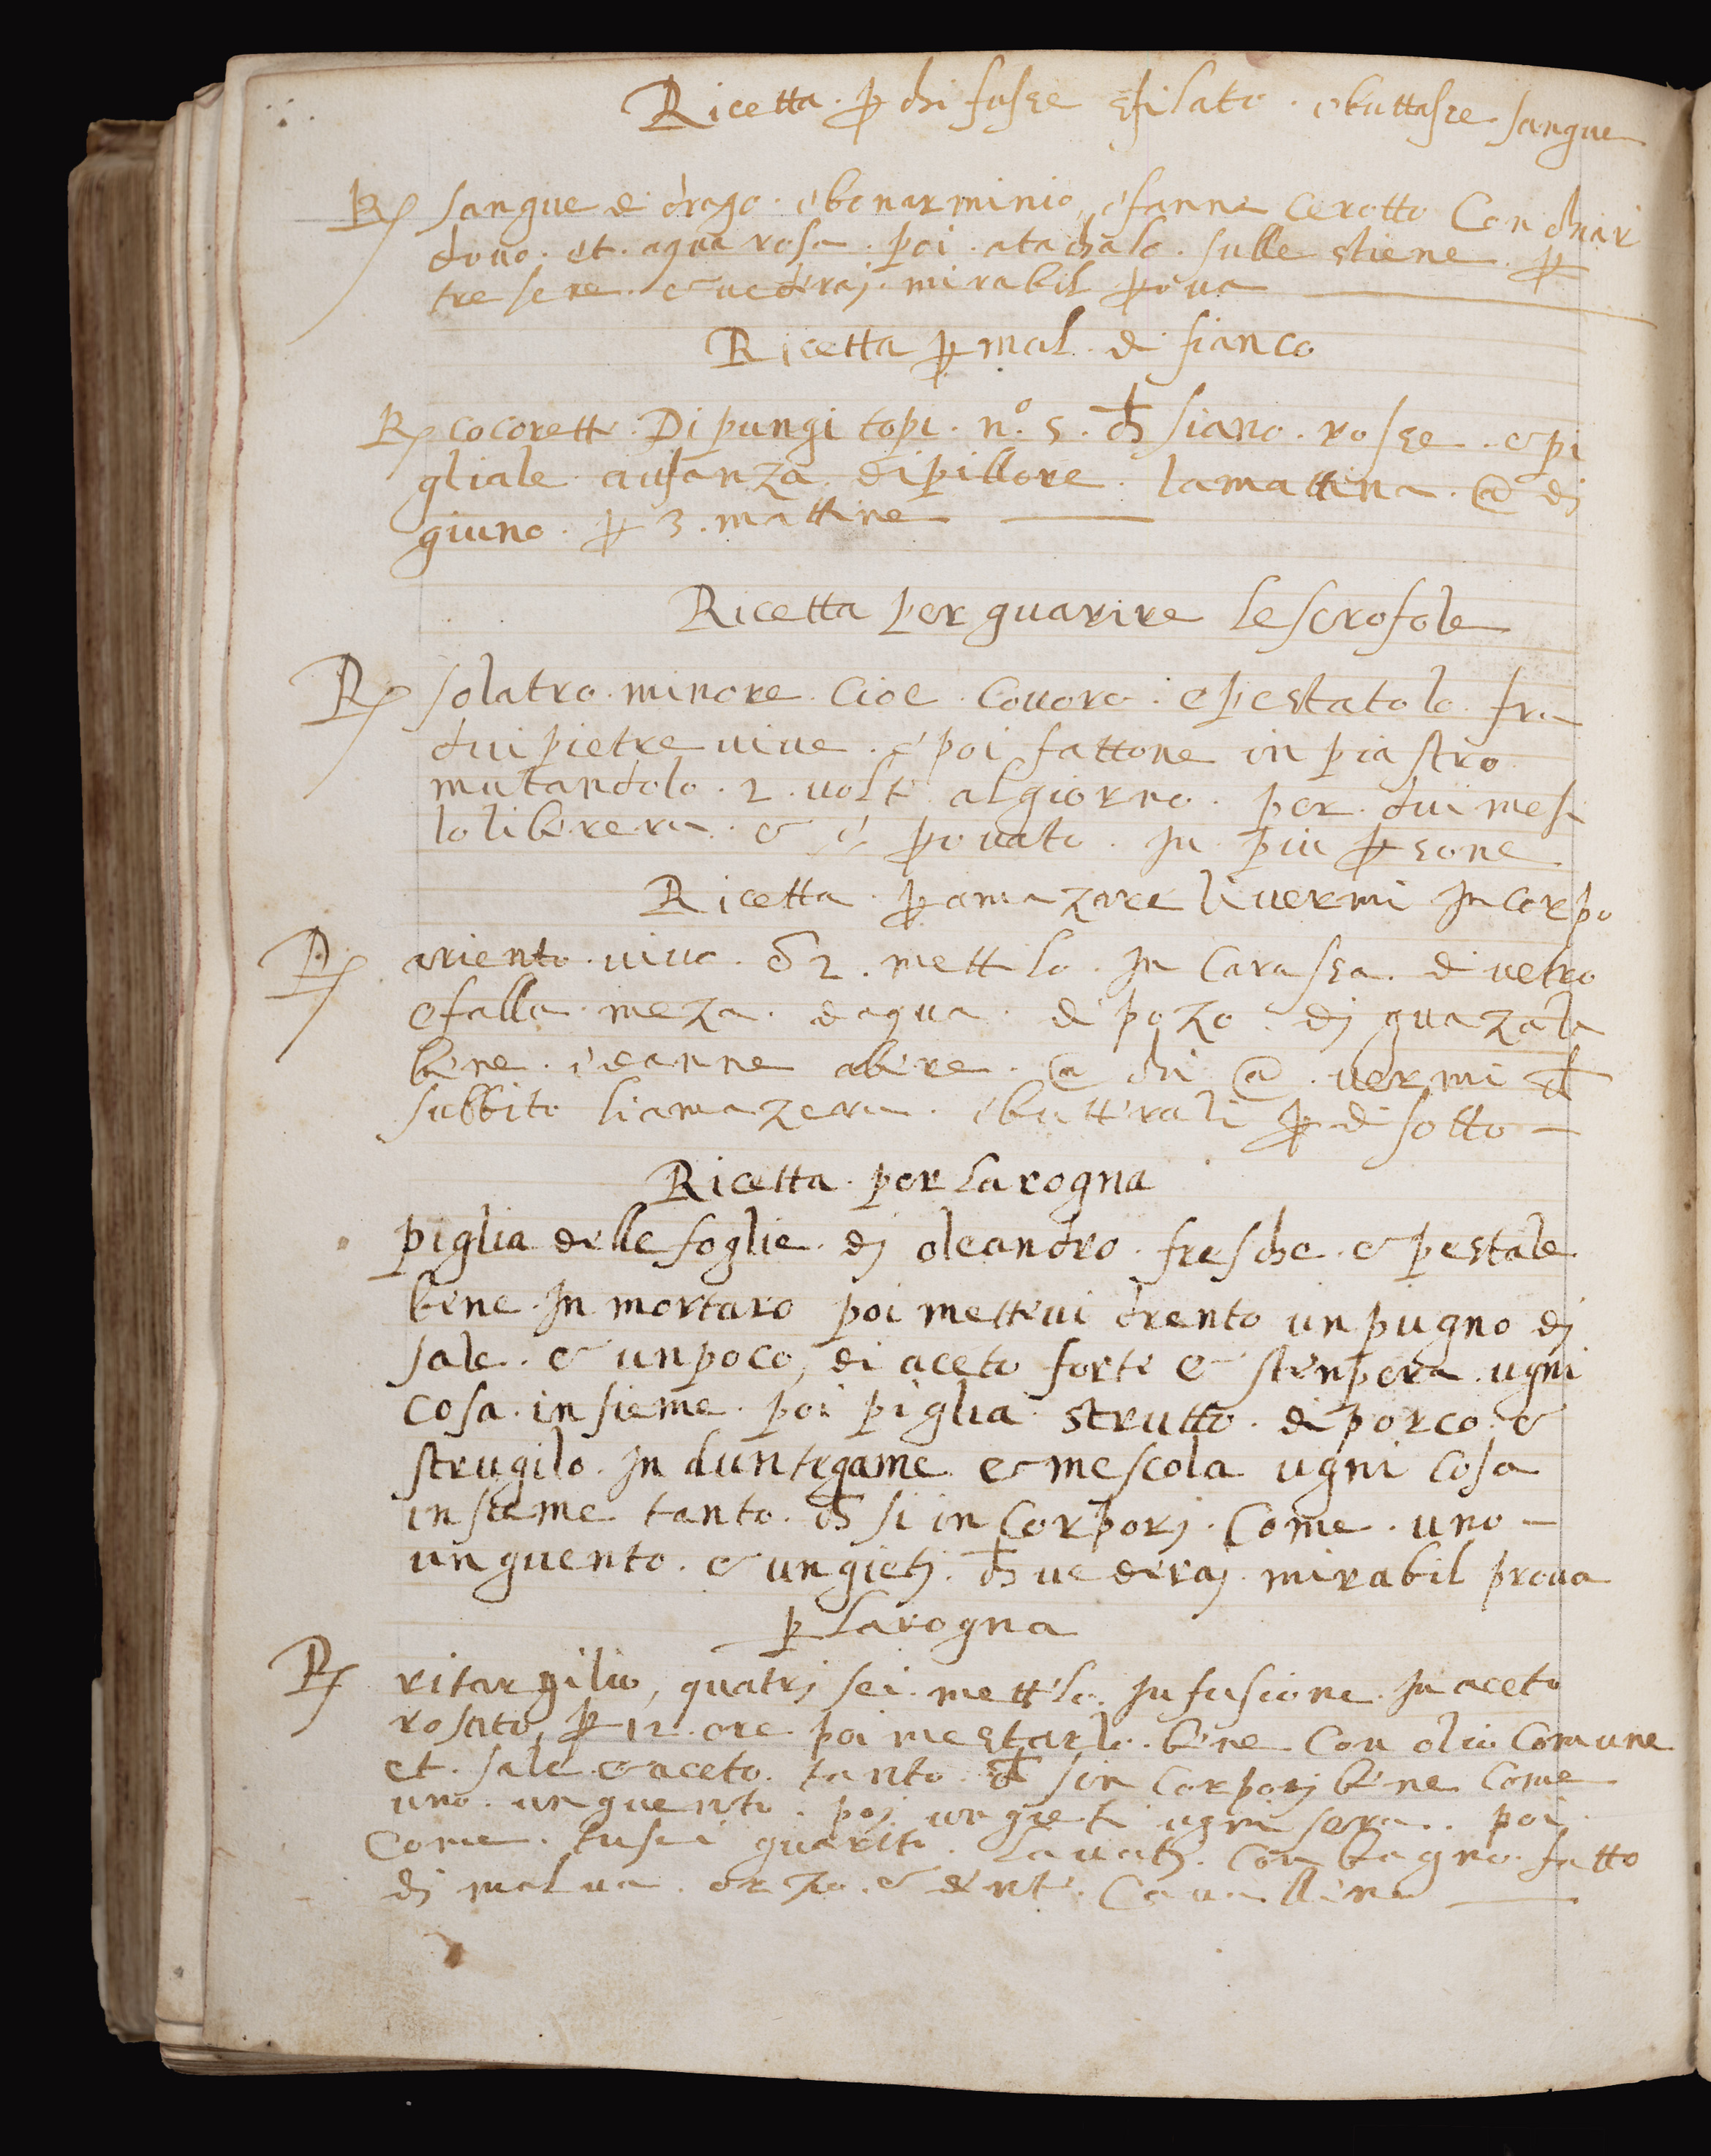 Ricetta · ꝑ chi fusse sfilato · e buttasse sangue
℞ sangue di drago · e bonarminio, e fanne Cerotto Con chiar
douo · et · aqua rosa · poi · atachalo · sulle stiene · ꝑ
tre sere · e uederaj · mirabil ꝓoua
Ricetta ꝑ mal · di fianco
℞ cocorette · Di pungi topi · n.º 5 · ch̄ siano · rosse · e pi
gliale ausanza di pillore · la mattina · @ di
giuno · ꝑ 3 · mattine
Ricetta per guarire le scrofole
℞ solatro · minore · Cioe · Couoro · e pestatolo · fra
dui pietre uiue · e poi fattone in piastro
mutandolo · 2 · uolte al giorno · per · dui mesi
lo liberera · e è ꝓouato · In piu ꝑsone
Ricetta · ꝑ amazare li uermi In corpo
℞ ariento · uiuo · 2 · mettilo · In Carassa · di uetro
e falla · meza · daqua · di pozo · dj guazala
bene · e danne abere · @ chi @ · uermi ch̄
subbito li amazera · e butterali ꝑ di sotto
Ricetta · per la rogna
piglia delle foglie · dj oleandro · fresche · e pestale
bene · In mortaro poi metteui drento un pugno dj
sale · e un poco, di aceto forte e stenpera · ugni
cosa · insieme · poi piglia strutto · di porco · e
strugilo · In dun tegame e mescola ugni cosa
insieme tanto · ch̄ si in Corporj · Come · uno
unguento · e ungietj · ch̄ uederaj · mirabil proua
ꝑ la rogna
℞ ritargilio, quatrj sei · mettilo · Infusione · In aceto
rosato, ꝑ 12 · ore · poi mestarlo · bene Con olio Comune
et · sale · e aceto · tanto · ch̄ sin Corporj bene Come
uno · unguento · poj ungieti ugni sera · · poi
Come · tusei guarito · Lauatj · Con bagno · fatto
dj malua · orzo · e dente · Cauallino